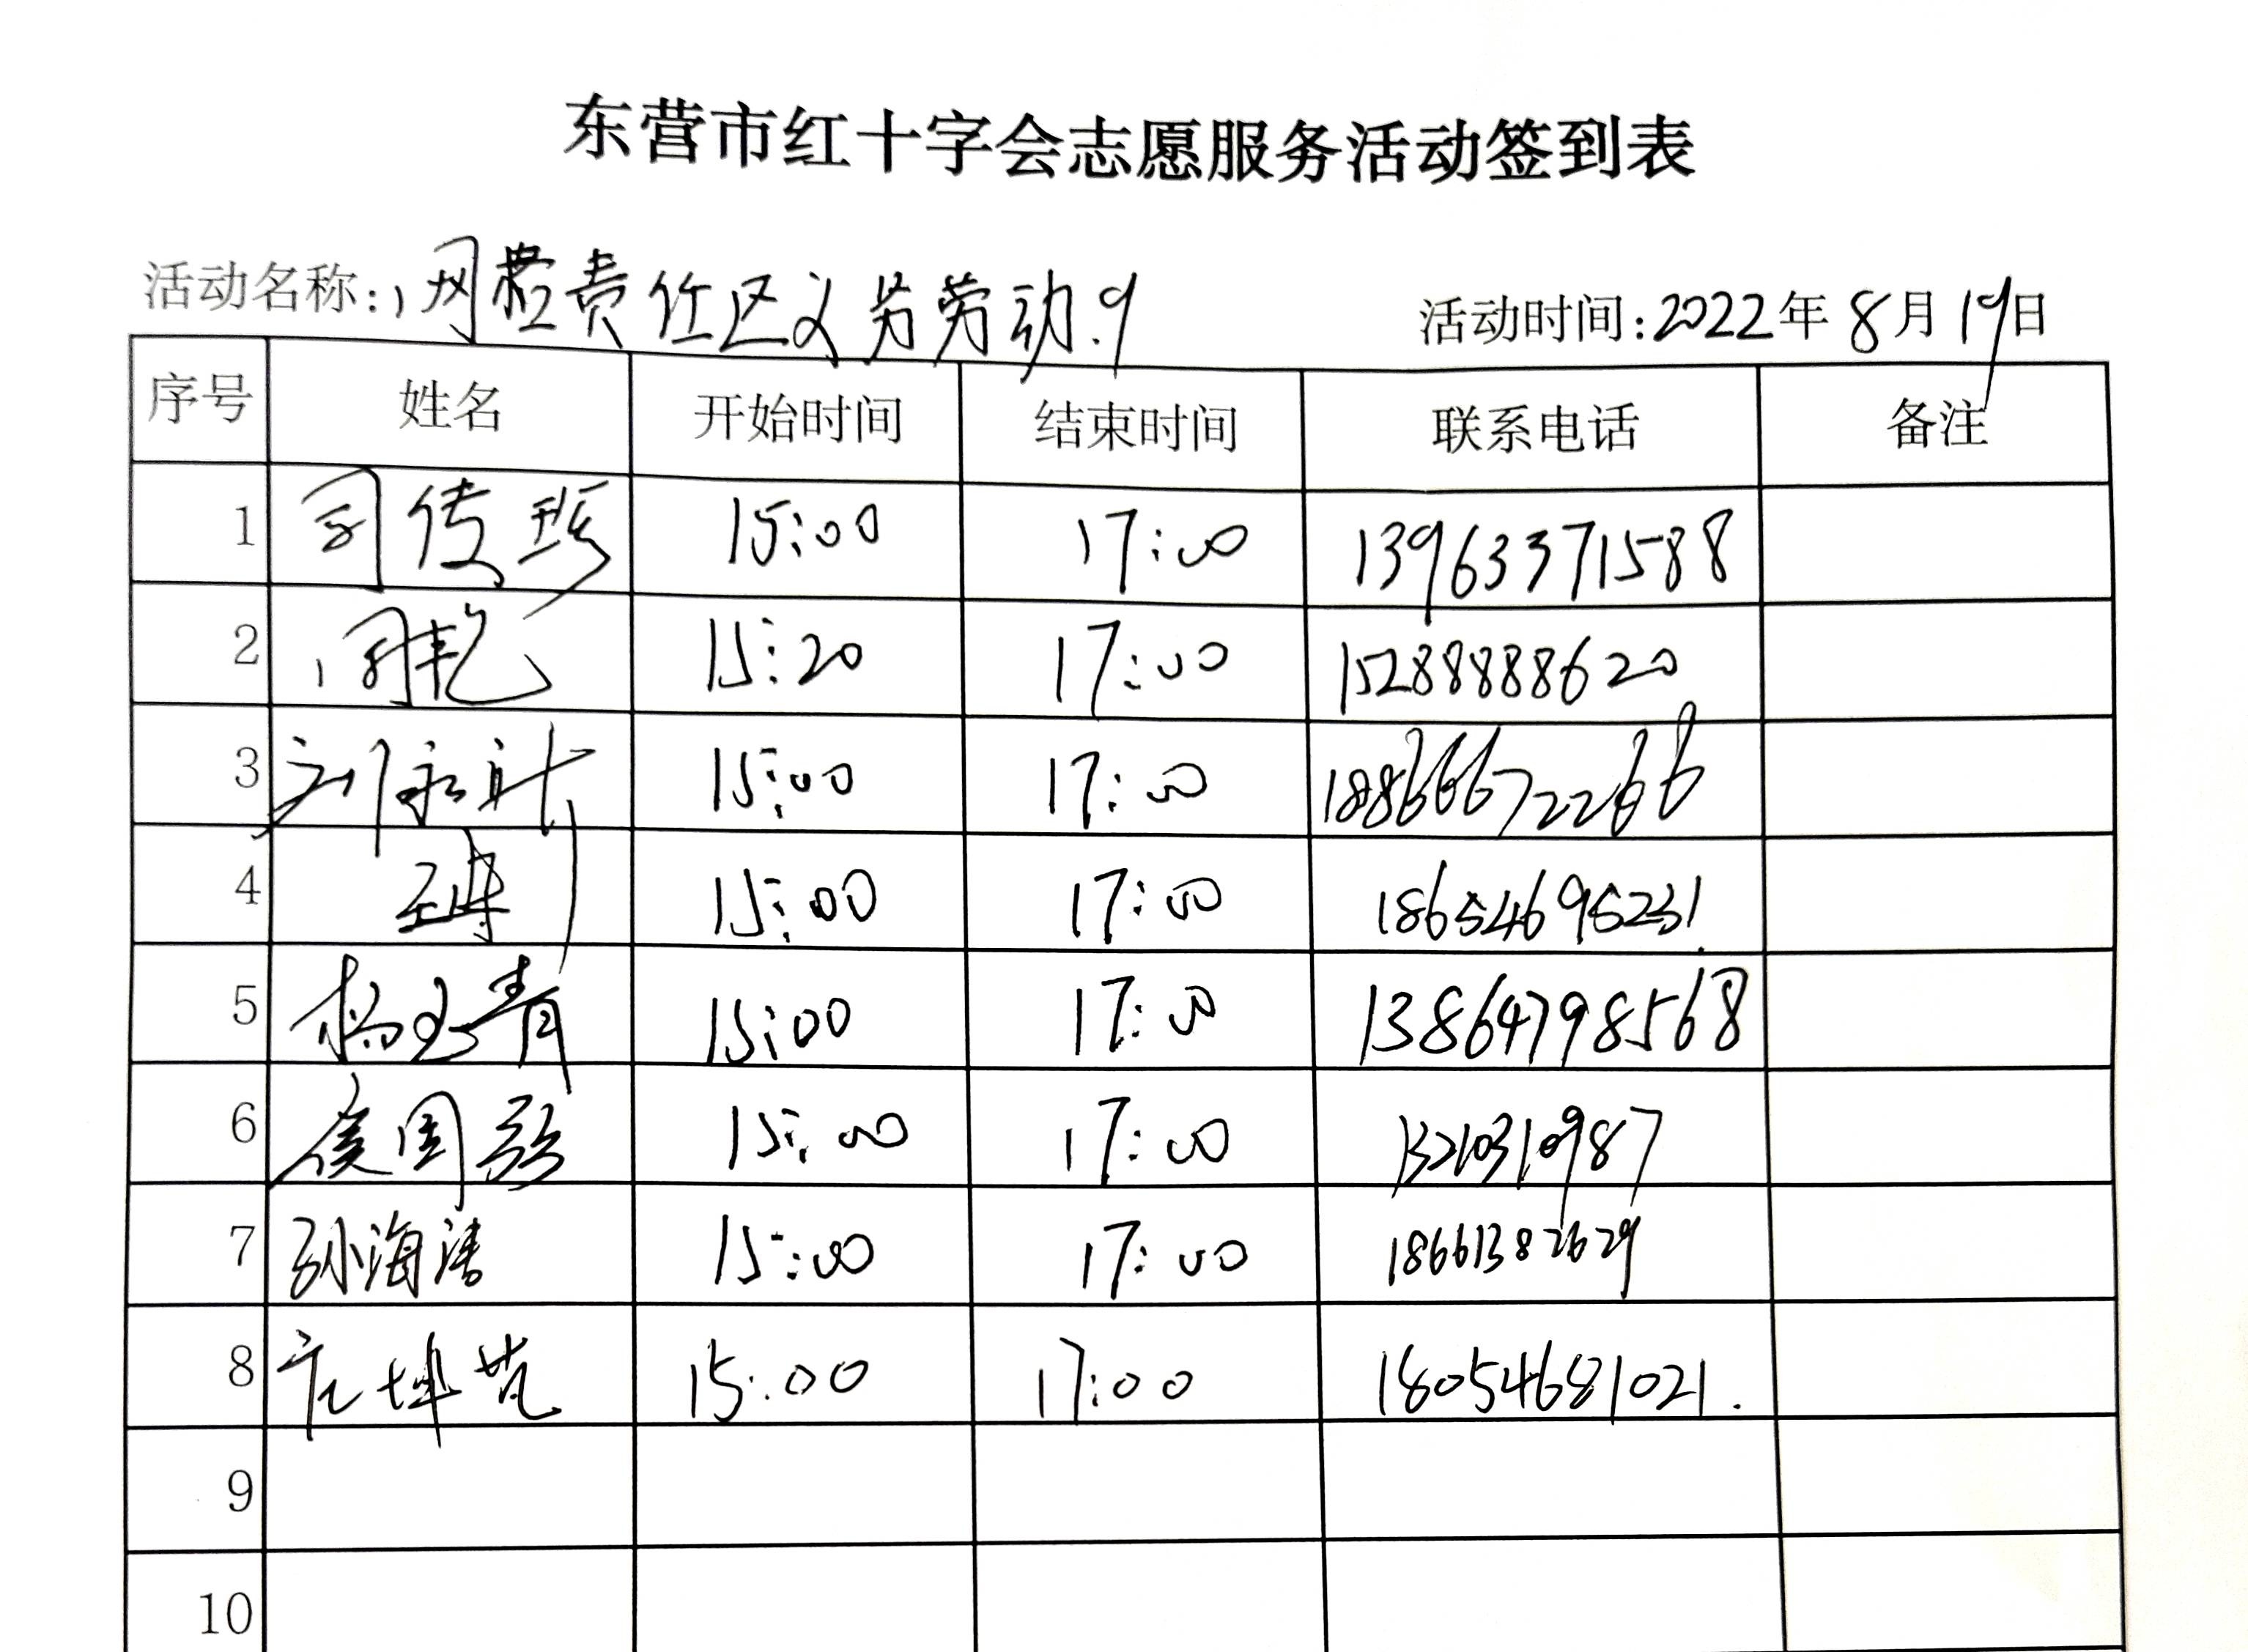 东营市红十字会志愿服务活动签到表
活动名称: 网格责任区义务劳动.9 活动时间:2022年8月19日
序号 姓名 开始时间 结束时间 联系电话 备注
1 司传珍 15:00 17:00 13963371588
2 15:20 17:00 15288888620
3 15:00 17:00 18866672266
4 15:00 17:00 18654695231
5 杨玉青 15:00 17:00 13864798568
6 侯国强 15:00 17:00 13210310987
7 孙海涛 15:00 17:00 18661382629
8 15:00 17:00 18054681021.
9
10